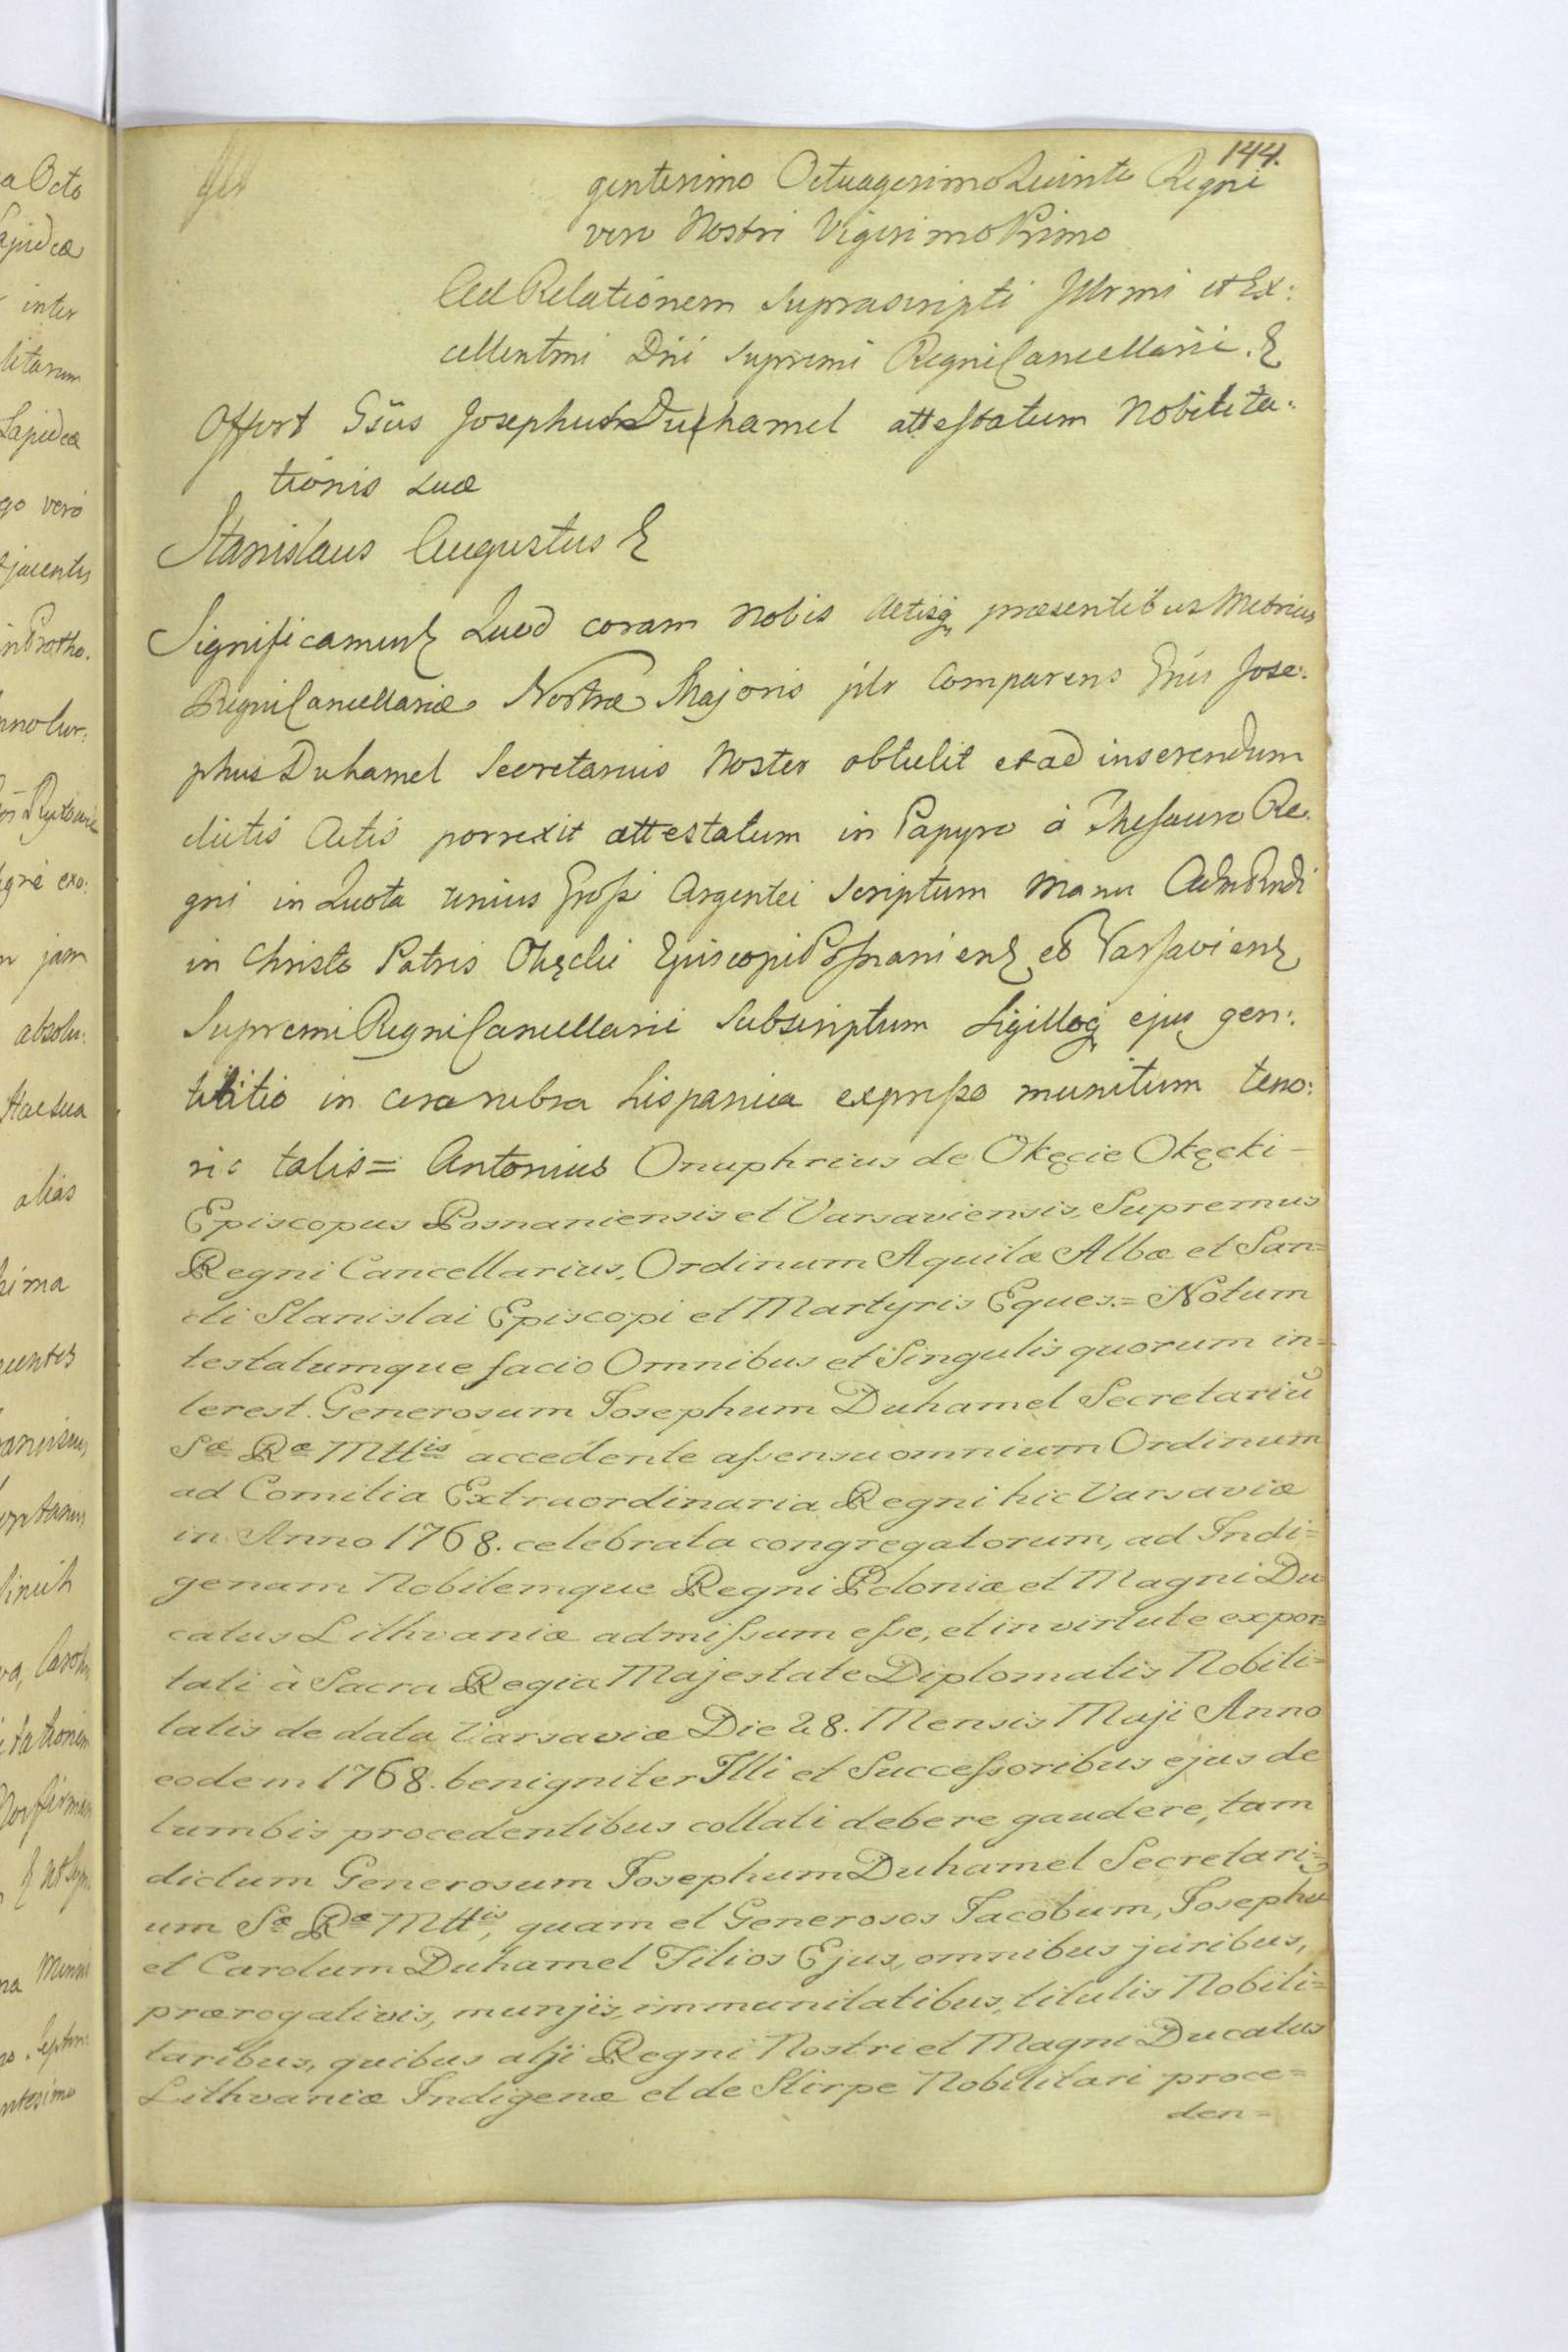 144.
gentesimo Octuagesimo Quinto Regni
vero Nostri Vigesimo Primo
Ad Relationem suprascripti Illrmi et Ex:
cellentmi Dni supremi Regni Cancellarii. &
Offert Gsus Josephus Duhamel attestatum Nobilita:
tionis suæ
Stanislaus Augustus &
Significamus Quod coram Nobis Actisq præsentibus Metrices
Regni Cancellariæ Nostræ Majoris plr Comparens Gnus Jose:
phus Duhamel Secretarius Noster obtulit et ad inserendum
dictis Actis porrexit attestatum in Papyro à Thesauro Re.
gni in Quota unius Grossi Argentei scriptum manu Admdi Rndi
in Christo Patris Okęcki Episcopi Posnaniens et Varsaviens
Supremi Regni Cancellarii Subscriptum Sigilloq ejus gen:
tilitio in cera rubra hispanica expresso munitum teno:
ris talis = Antonius Onuphrius de Okęcie Okęcki –
Episcopus Posnaniensis et Varsaviensis, Supremus
Regni Cancellarius, Ordinum Aquilæ Albæ et San=
cti Stanislai Episcopi et Martyris Eques. = Notum
testatumque facio Omnibus et Singulis quorum in=
terest. Generosum Josephum Duhamel Secretariũ
Sæ Ræ Mttis accedente assensu omnium Ordinum
ad Comitia Extraordinaria Regni hic Varsaviæ
in Anno 1768. celebrata congregatorum, ad Indi=
genam Nobilemque Regni Poloniæ et Magni Du
catus Lithvaniæ admissum esse, et in virtute expor=
tati à Sacra Regia Majestate Diplomatis Nobili=
tatis de data Varsaviæ Die 28. Mensis Maji Anno
eodem 1768. benigniter Illi et Successoribus ejus de
lumbis procedentibus collati debere gaudere, tam
dictum Generosum Josephum Duhamel Secretari=
um Sæ Ræ Mttis, quam et Generosos Jacobum, Josephũ
et Carolum Duhamel Filios Ejus, omnibus juribus,
prærogativis, munijs, immunitatibus, titulis Nobili=
taribus, quibus alji Regni Nostri et Magni Ducatus
Lithvaniæ Indigenæ et de Stirpe Nobilitari proce=
den=